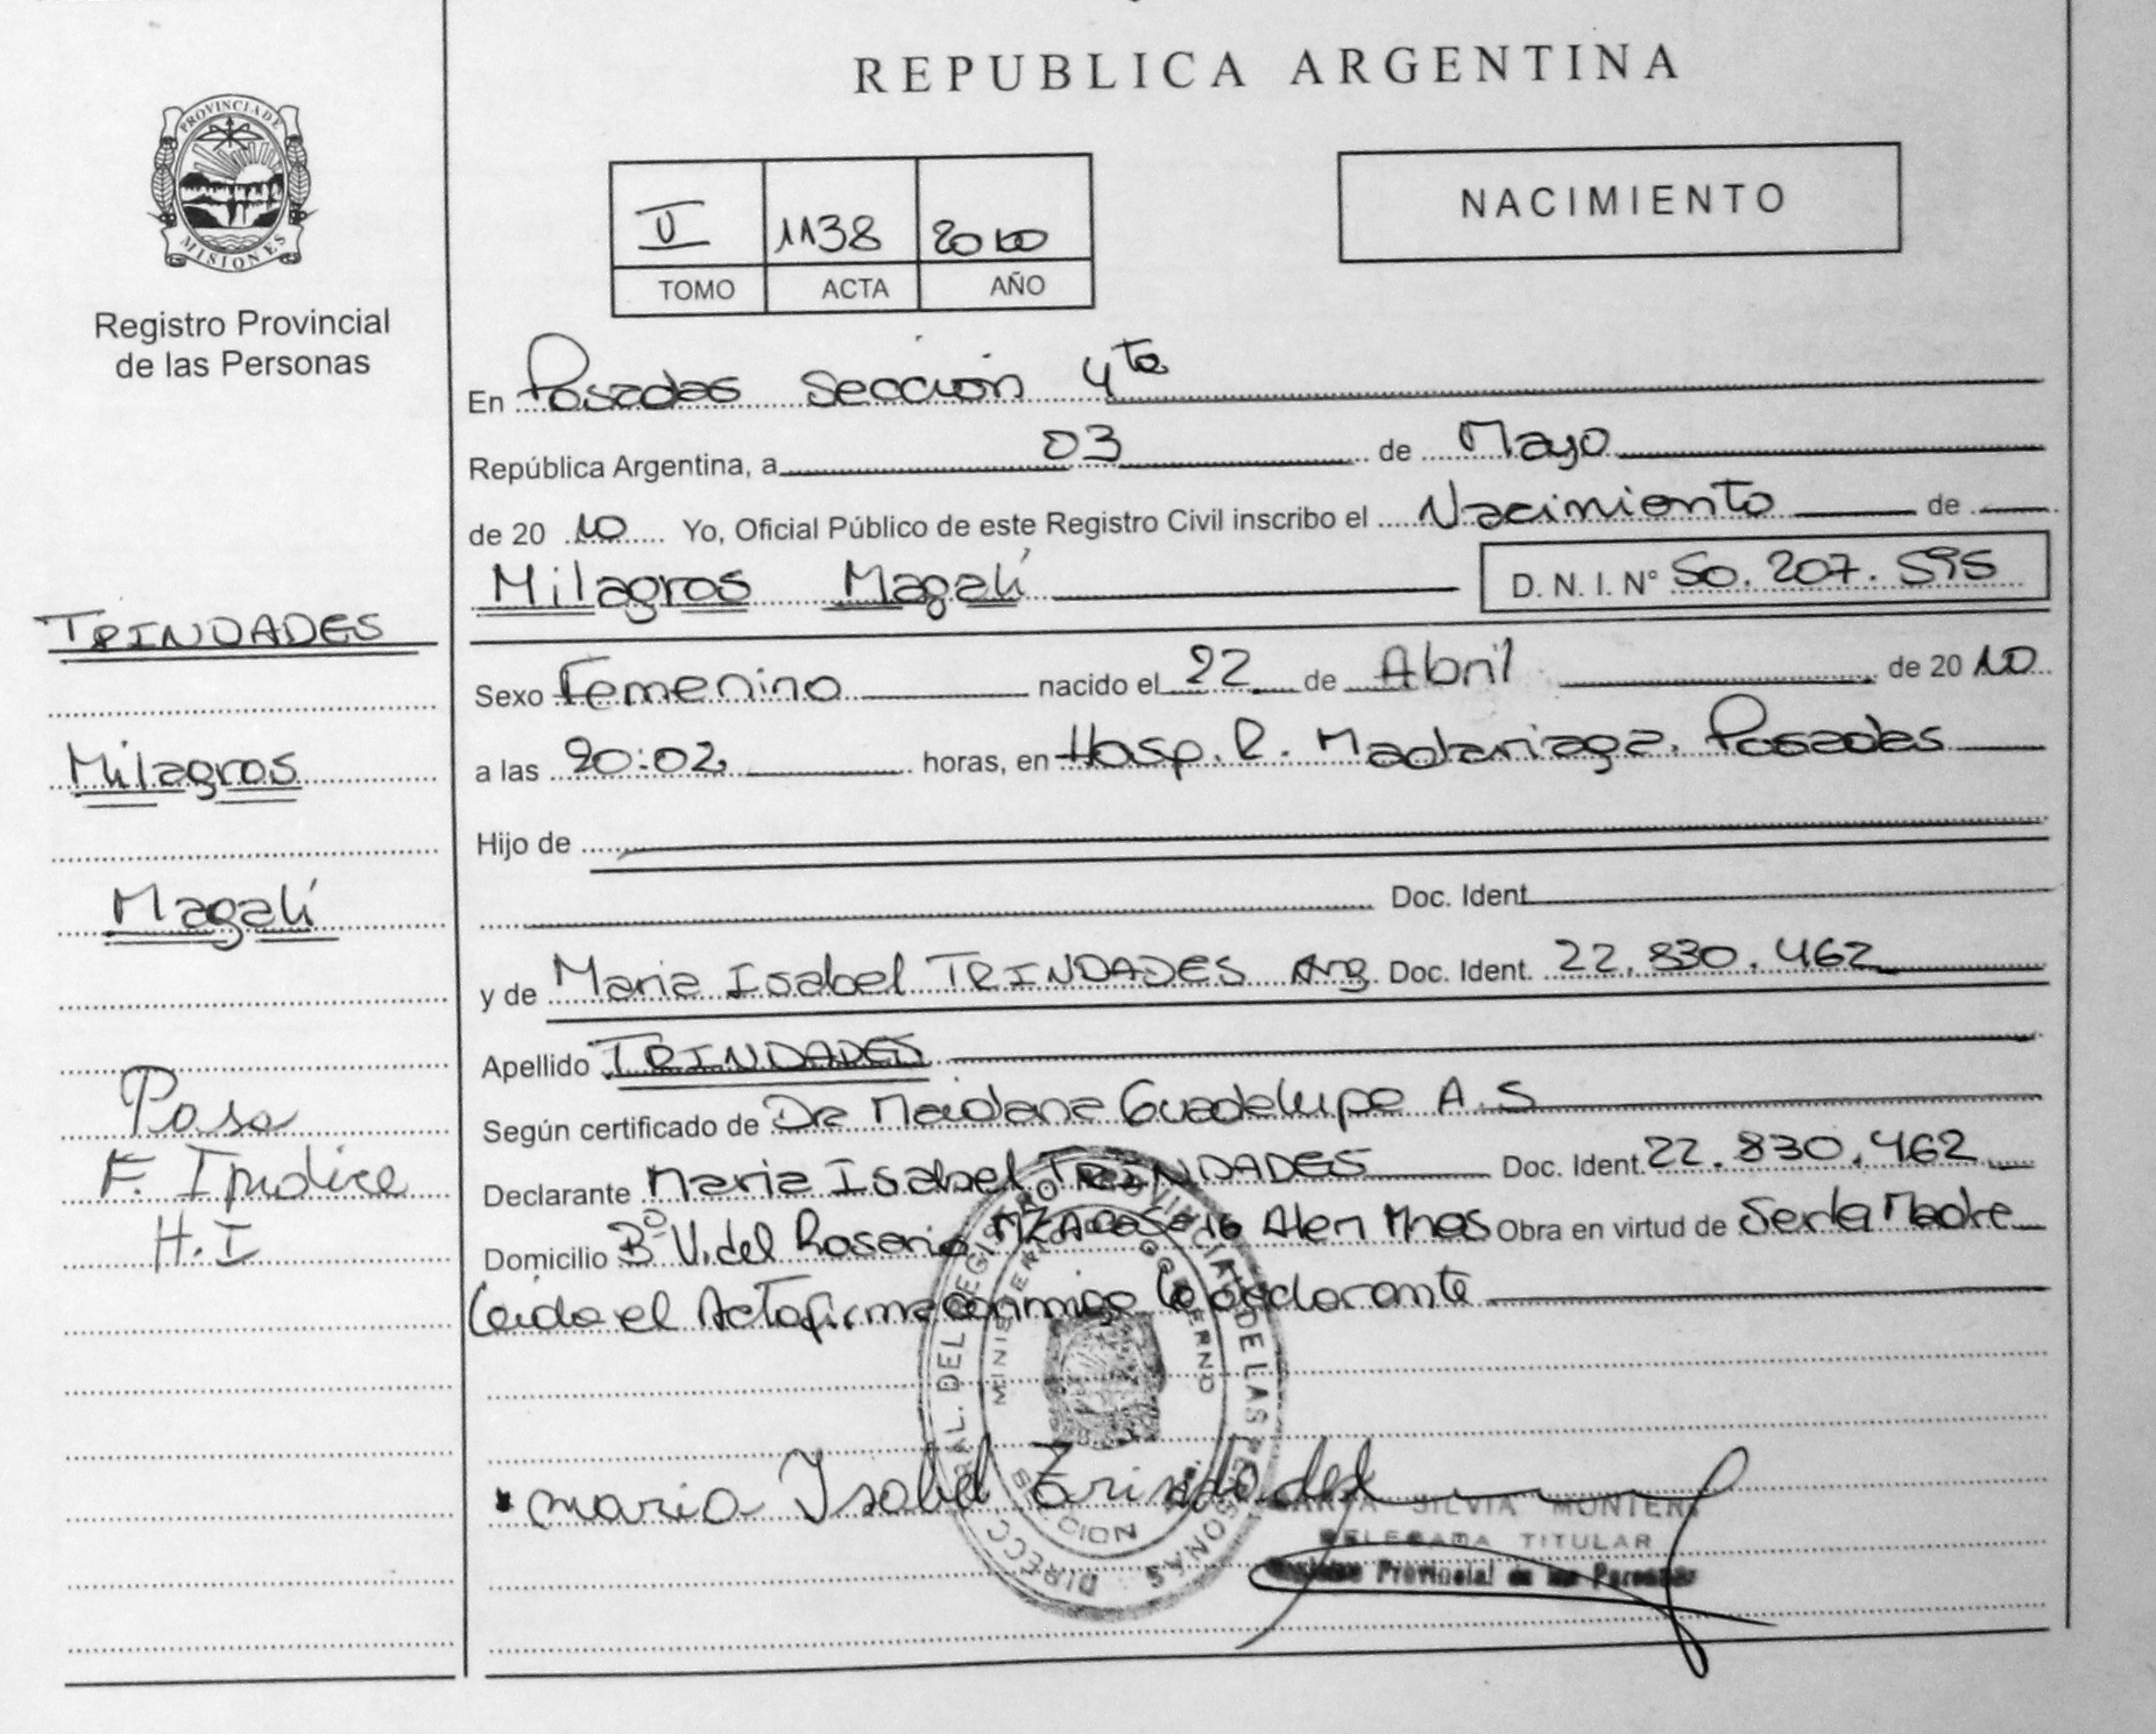 REPUBLICA ARGENTINA
PROVINCIA DE
MISIONES
Registro Provincial
de las Personas
II 1138 2010
TOMO ACTA AÑO
NACIMIENTO
En Posadas Sección 4ta
República Argentina, a 03 de Mayo
de 20 10 Yo, Oficial Público de este Registro Civil inscribo el Nacimiento de
Milagros Magalí D. N. I. Nº 50.207.595
TRINDADES
Milagros
Magalí
Sexo Femenino nacido el 22 de Abril de 20 10
a las 20:02 horas, en Hosp. R. Madariaga. Posadas
Hijo de
Doc. Ident.
y de Maria Isabel TRINDADES Arg Doc. Ident. 22.830.462
Apellido TRINDADES
Según certificado de Dra Maidana Guadalupe A.S
Declarante Maria Isabel TRINDADES Doc. Ident. 22.830.462
Domicilio Bº V. del Rosario MZA Casa 16 Alem Mnes Obra en virtud de Ser la Madre
Leida el Acta firma conmigo la declarante
Posa
F. Indice
H.I
maria Isabel Trindades
SILVIA
DELEGADA TITULAR
Registro Provincial de las Personas
DIRECC. GRAL. DEL REGISTRO PROVINCIAL DE LAS PERSONAS
MINISTERIO DE GOBIERNO